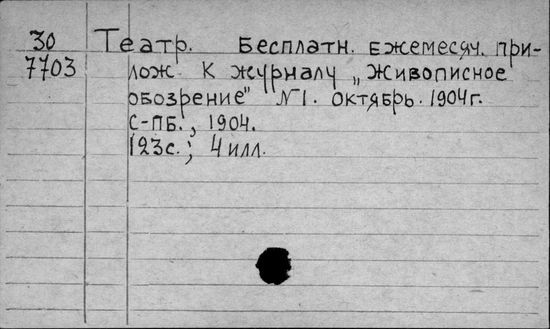 30 Театр. Бесплатн. Ежемесяч. при-
7703 лож. к журналу „Живописное
обозрение" N1. Октябрь. 1904г.
С-ПБ., 1904.
123с.; 4 илл.